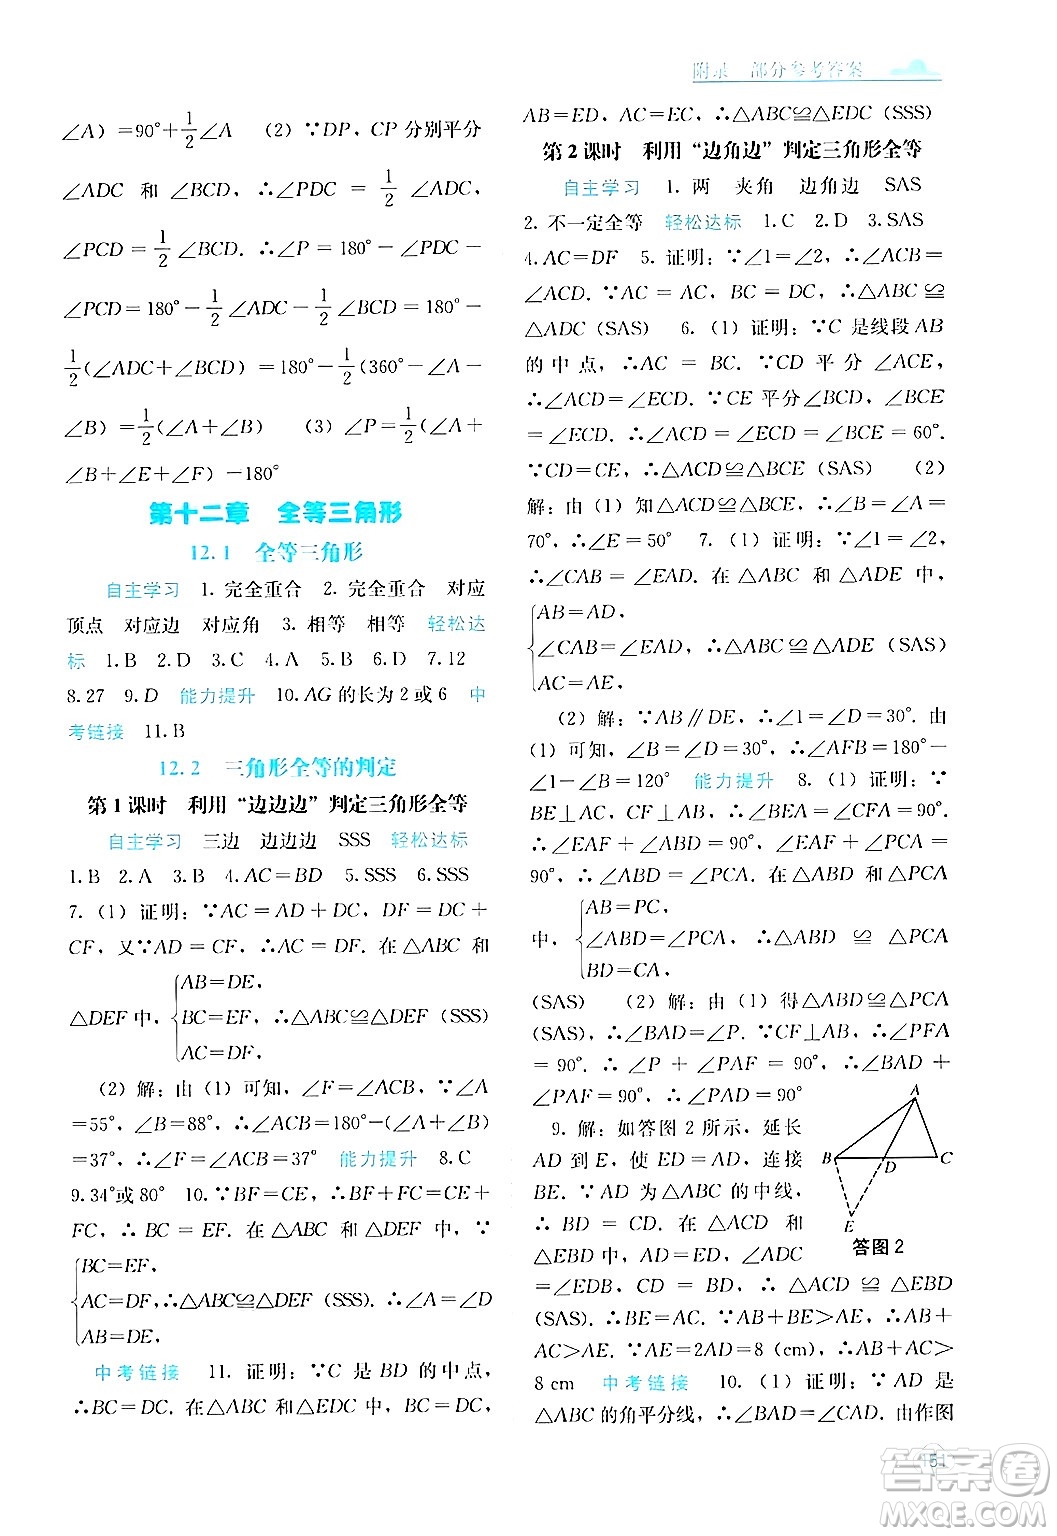 附录 部分参考答案
∠A）＝90°＋1/2∠A （2）∵DP，CP分别平分
∠ADC 和 ∠BCD，∴∠PDC ＝ 1/2 ∠ADC，
∠PCD＝1/2∠BCD．∴∠P＝180°－∠PDC－
∠PCD＝180°－1/2∠ADC－1/2∠BCD＝180°－
1/2（∠ADC＋∠BCD）＝180°－1/2（360°－∠A－
∠B）＝1/2（∠A＋∠B） （3）∠P＝1/2（∠A＋
∠B＋∠E＋∠F）－180°
第十二章 全等三角形
12.1 全等三角形
自主学习 1.完全重合 2.完全重合 对应
顶点 对应边 对应角 3.相等 相等 轻松达
标 1.B 2.D 3.C 4.A 5.B 6.D 7.12
8.27 9.D 能力提升 10.AG的长为2或6 中
考链接 11.B
12.2 三角形全等的判定
第1课时 利用“边边边”判定三角形全等
自主学习 三边 边边边 SSS 轻松达标
1.B 2.A 3.B 4.AC＝BD 5.SSS 6.SSS
7.（1）证明：∵AC＝AD＋DC，DF＝DC＋
CF，又∵AD＝CF，∴AC＝DF．在△ABC 和
△DEF中，{AB＝DE，
BC＝EF，∴△ABC≌△DEF（SSS）
AC＝DF，
（2）解：由（1）可知，∠F＝∠ACB，∵∠A
＝55°，∠B＝88°，∴∠ACB＝180°－（∠A＋∠B）
＝37°，∴∠F＝∠ACB＝37° 能力提升 8.C
9.34°或80° 10.∵BF＝CE，∴BF＋FC＝CE＋
FC，∴BC＝EF．在△ABC 和△DEF 中，∵
{BC＝EF，
AC＝DF，∴△ABC≌△DEF（SSS）．∴∠A＝∠D
AB＝DE，
中考链接 11.证明：∵C 是 BD 的中点，
∴BC＝DC．在△ABC 和△EDC 中，BC＝DC，
AB＝ED，AC＝EC，∴△ABC≌△EDC（SSS）
第2课时 利用“边角边”判定三角形全等
自主学习 1.两 夹角 边角边 SAS
2.不一定全等 轻松达标 1.C 2.D 3.SAS
4.AC＝DF 5.证明：∵∠1＝∠2，∴∠ACB＝
∠ACD．∵AC＝AC，BC＝DC，∴△ABC≌
△ADC（SAS） 6.（1）证明：∵C是线段AB
的中点，∴AC＝BC．∵CD平分∠ACE，
∴∠ACD＝∠ECD．∵CE平分∠BCD，∠BCE
＝∠ECD．∴∠ACD＝∠ECD＝∠BCE＝60°．
∵CD＝CE，∴△ACD≌△BCE（SAS） （2）
解：由（1）知△ACD≌△BCE，∴∠B＝∠A＝
70°，∴∠E＝50° 7.（1）证明：∵∠1＝∠2，
∴∠CAB＝∠EAD．在△ABC 和△ADE 中，
{AB＝AD，
∠CAB＝∠EAD，∴△ABC≌△ADE（SAS）
AC＝AE，
（2）解：∵AB∥DE，∴∠1＝∠D＝30°．由
（1）可知，∠B＝∠D＝30°，∴∠AFB＝180°－
∠1－∠B＝120° 能力提升 8.（1）证明：∵
BE⊥AC，CF⊥AB，∴∠BEA＝∠CFA＝90°．
∴∠EAF＋∠ABD＝90°，∠EAF＋∠PCA＝
90°，∴∠ABD＝∠PCA．在△ABD 和△PCA
中，{AB＝PC，
∠ABD＝∠PCA，∴△ABD≌△PCA
BD＝CA，
（SAS） （2）解：由（1）得△ABD≌△PCA
（SAS），∴∠BAD＝∠P．∵CF⊥AB，∴∠PFA
＝90°．∴∠P＋∠PAF＝90°，∴∠BAD＋
∠PAF＝90°．∴∠PAD＝90°
9.解：如答图2所示，延长
AD到E，使ED＝AD，连接
BE．∵AD为△ABC的中线，
∴BD＝CD．在△ACD 和
△EBD中，AD＝ED，∠ADC
＝∠EDB，CD＝BD，∴△ACD≌△EBD
（SAS）．∴BE＝AC．∵AB＋BE＞AE，∴AB＋
AC＞AE．∵AE＝2AD＝8（cm），∴AB＋AC＞
8 cm 中考链接 10.（1）证明：∵AD是
△ABC的角平分线，∴∠BAD＝∠CAD．由作图
A
B
D
C
E
答图2
151
答案圈
MXQE.COM